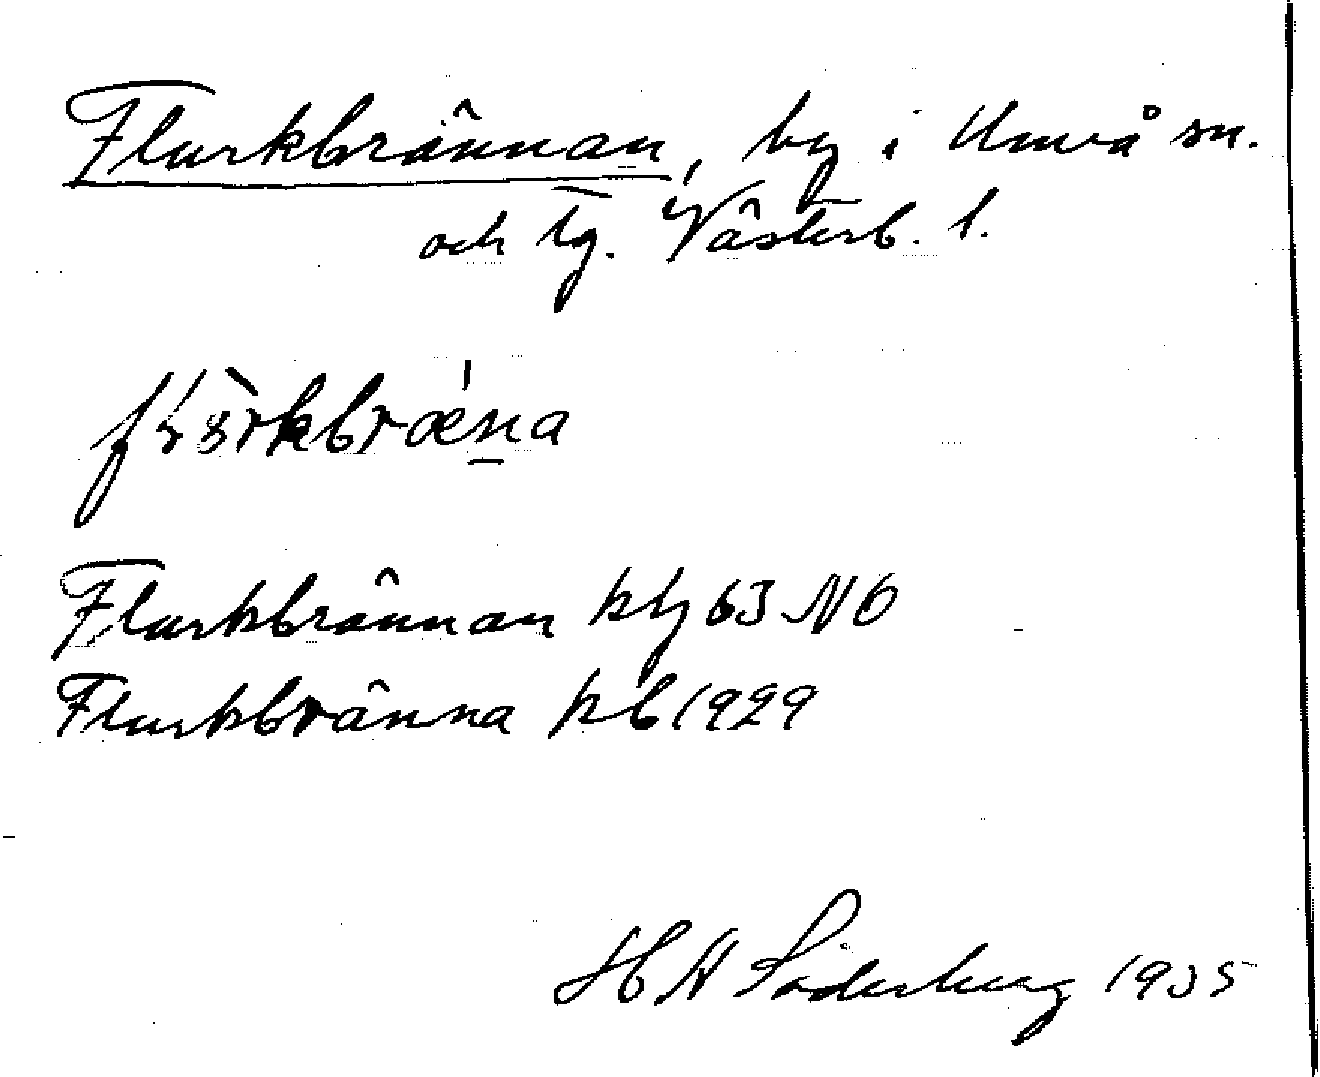 Flurkbrännan, by i Umeå sn.
och tg. Västerb. l.
Flurkbrännan kbl 63 NO
Flurkbränna kb 1929
H A Söderberg 1935